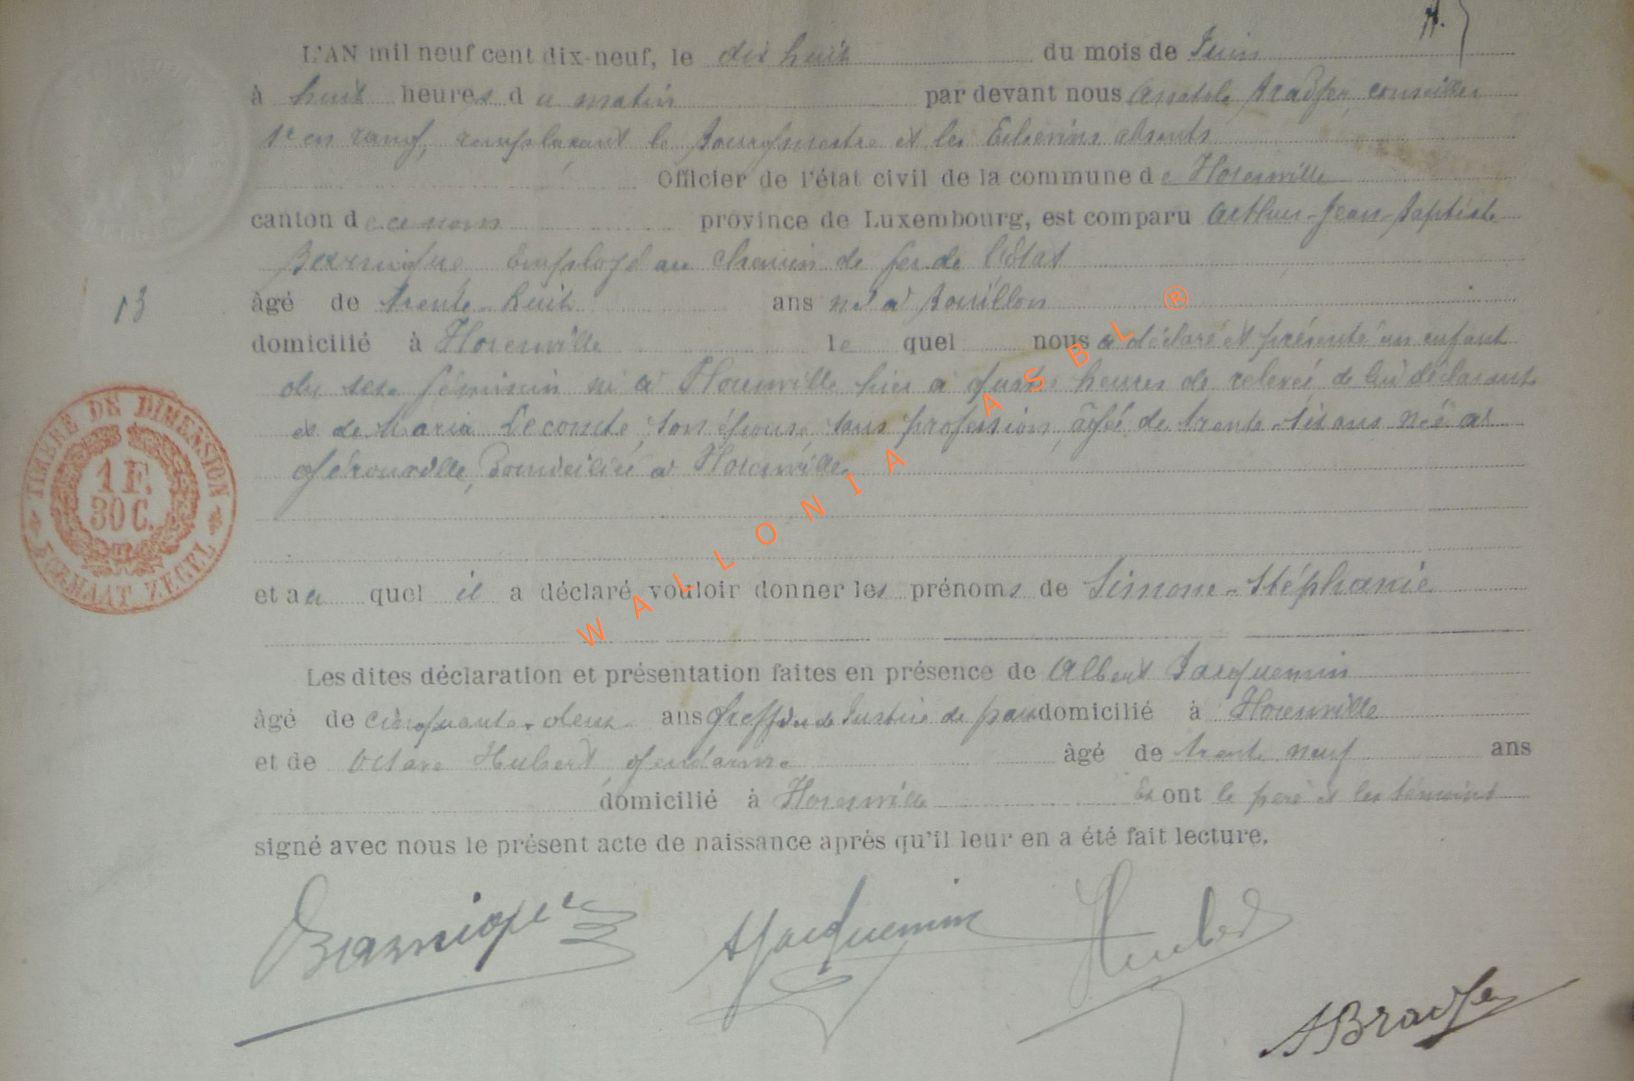 L'AN mil neuf cent dix-neuf, le dix huit du mois de Juin
à huit heures du matin par devant nous Anatole conseiller
1r en rang, remplaçant le Bourgmestre et les Echevins absents
Officier de l'état civil de la commune de Florenville
canton de ce nom province de Luxembourg, est comparu Arthur-Jean-Baptiste
Employé au chemin de fer de l'Etat
13
âgé de trente-huit ans né à Bouillon
domicilié à Florenville le quel nous a déclaré et présenté un enfant
du sexe féminin né à Florenville hier à quatre heures de relevée de lui déclarant
et de Maria Lecomte, son épouse, sans profession, âgée de trente-six ans née à
Gérouville, Domiciliée à Florenville.
TIMBRE DE DIMENSION
1 F.
30 C.
FORMAAT ZEGEL
et au quel il a déclaré vouloir donner les prénoms de Simone-Stéphanie
Les dites déclaration et présentation faites en présence de Albert Jacquemin
âgé de cinquante-deux ans Greffier de Justice de paix domicilié à Florenville
et de Octave Hubert gendarme âgé de trente neuf ans
domicilié à Florenville Et ont le père et les témoins
signé avec nous le présent acte de naissance aprés qu'il leur en a été fait lecture.
AJacquemin Hubert
WALLONIA ASBL ®